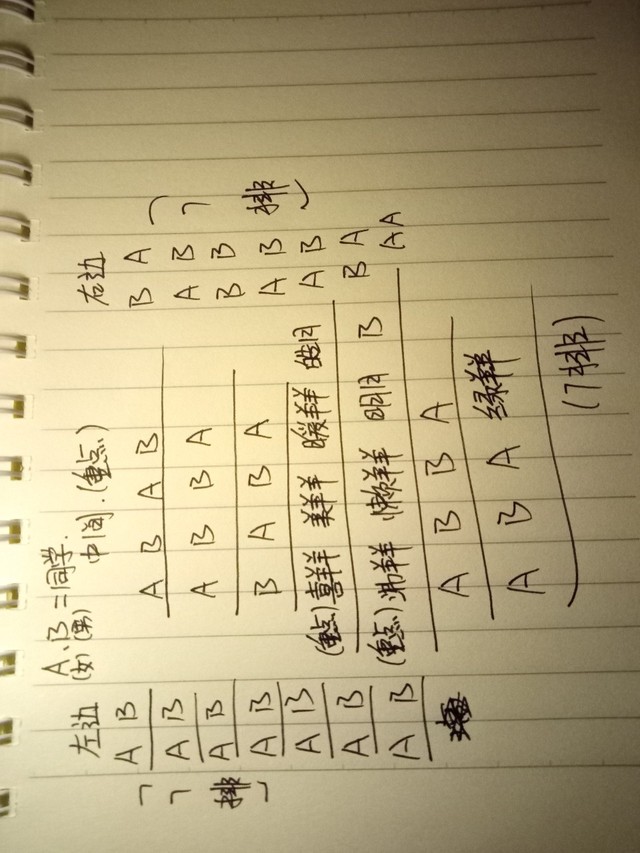 A、B=同学.
(女)(男)
左边
A B
A B
A B
A B
A B
A B
A B
(7排)
中间.(重点)
A B A B
A B B A
B A B A
(重点)喜羊羊 美羊羊 暖羊羊 皓月
(重点)沸羊羊 懒羊羊 明月 B
A B B A
A B A 绿羊羊
(7排)
右边
B A
A B
B B
A B
A B
B A
A A
(7排)